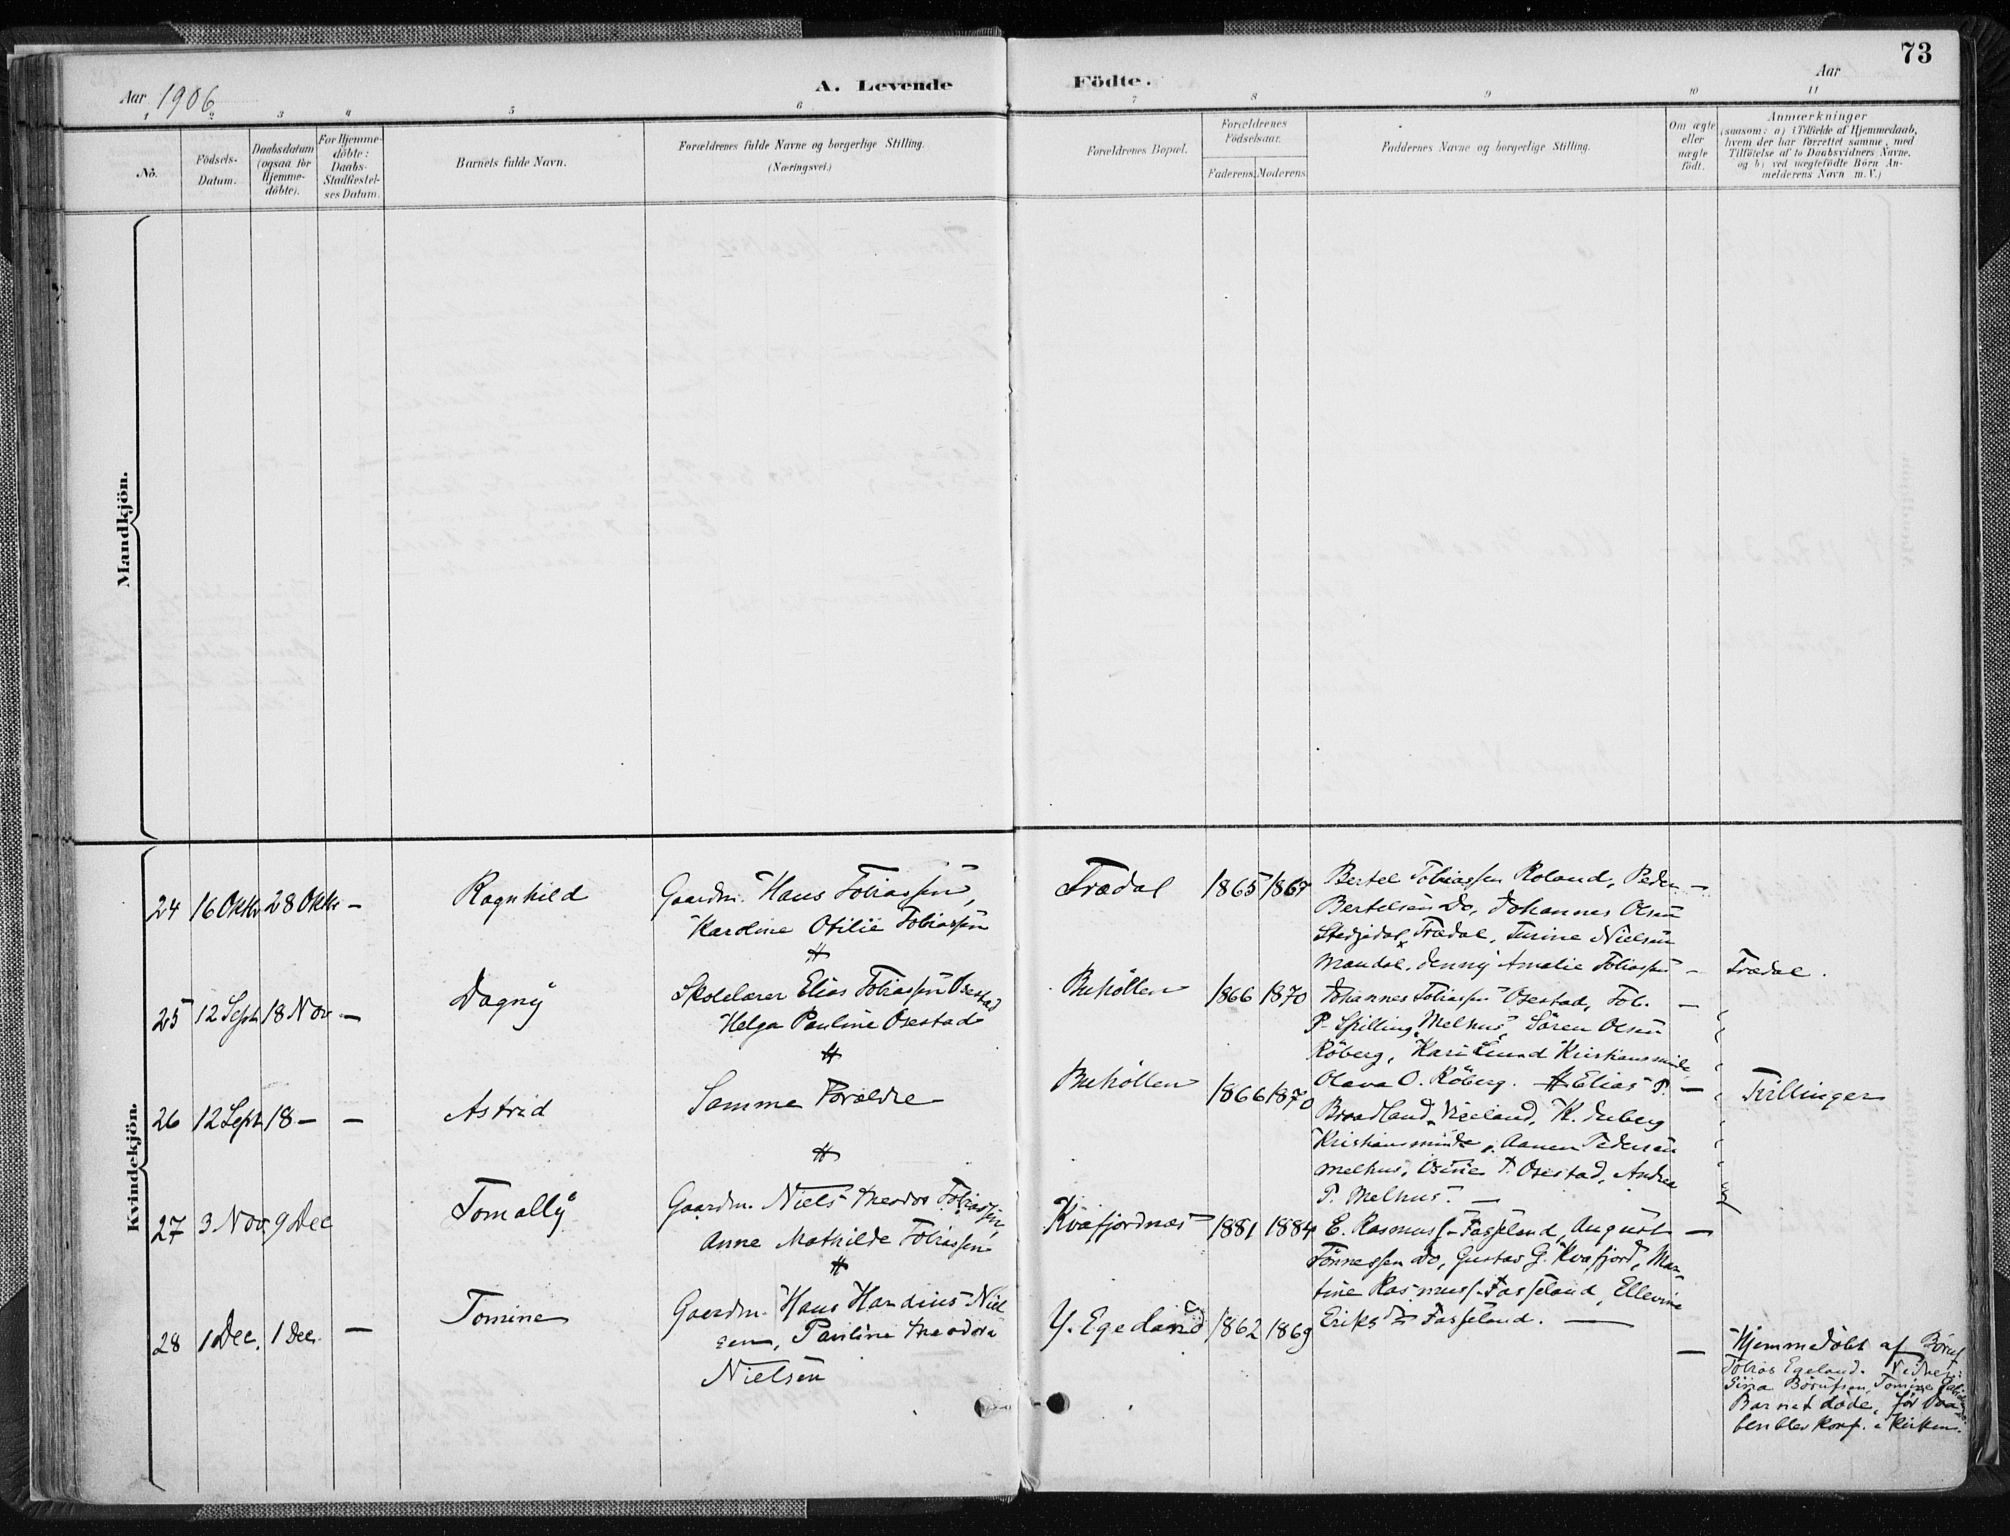 73
Aar 1906
A. Levende Födte.
Aar
1 2 3 4 5 6 7 8 9 10 11
No.
Födsels-Datum.
Daabsdatum (ogsaa for Hjemme-döbte).
For Hjemme-döbte: Daabs-Stadfæstel-ses Datum.
Barnets fulde Navn.
Forældrenes fulde Navne og borgerlige Stilling.
(Næringsvei.)
Forældrenes Bopæl.
Forældrenes Födselsaar.
Faderens. Moderens.
Faddernes Navne og borgerlige Stilling.
Om ægte eller uægte födt.
Anmærkninger
(saasom: a) i Tilfælde af Hjemmedaab,
hvem der har forrettet samme, med
Tilföielse af to Daabsvidners Navne,
og b) ved uægtefödte Börn An-
melderens Navn m. V.)
Mandkjön.
Kvindekjön.
24 16 Oktbr 28 Oktbr —
Ragnhild
Gaardm. Hans Tobiassen,
Karoline Otilie Tobiassen
Trædal 1865 1867
Bertel Tobiassen Roland, Peder —
Bertelsen Do, Johannes Olsen
Stedjedal, Trædal, Turine Nielsen
Mandal, Jenny Amalie Tobiassen — Trædal.
25 12 Septr 18 Nov —
Dagny
Skolelærer Elias Tobiassen Osestad
Helga Pauline Osestad
Buhöllen 1866 1870
Johannes Tobiassen Osestad, Tob. —
P. Spilling, Melhus, Sören Olsen
Röberg, Kari Lund Kristiansminde,
Olava O. Röberg.
26 12 Septr 18 — —
Astrid
Samme Forældre
Buhöllen 1866 1870
Elias P. —
Braadland, Vigeland, K.
Kristiansminde, Aanen Pedersen
Melhus, Osine T. Osestad, Andrea
P. Melhus. —
Tvillinger
27 3 Nov. 9 Dec
Tomally
Gaardm. Niels Theodor Tobiassen,
Anne Mathilde Tobiassen
Kvafjordnæs 1881 1884
E. Rasmuss. Fasseland, August —
Tönnessen Do, Gustav G. Kvafjord, Mar-
tine Rasmuss. Fasseland, Ellevine
Eriksdtr Fasseland. —
28 1 Dec. 1 Dec. —
Tomine
Gaardm. Hans Handius Niel
sen, Pauline Theodora
Nielsen
Y. Egeland 1862 1869
— Hjemmedöbt af Böruf
Tobias Egeland. Vidner:
Gina Börufsen, Tomine
Barnet döde, för Daa
ben blev konf. i Kirken.